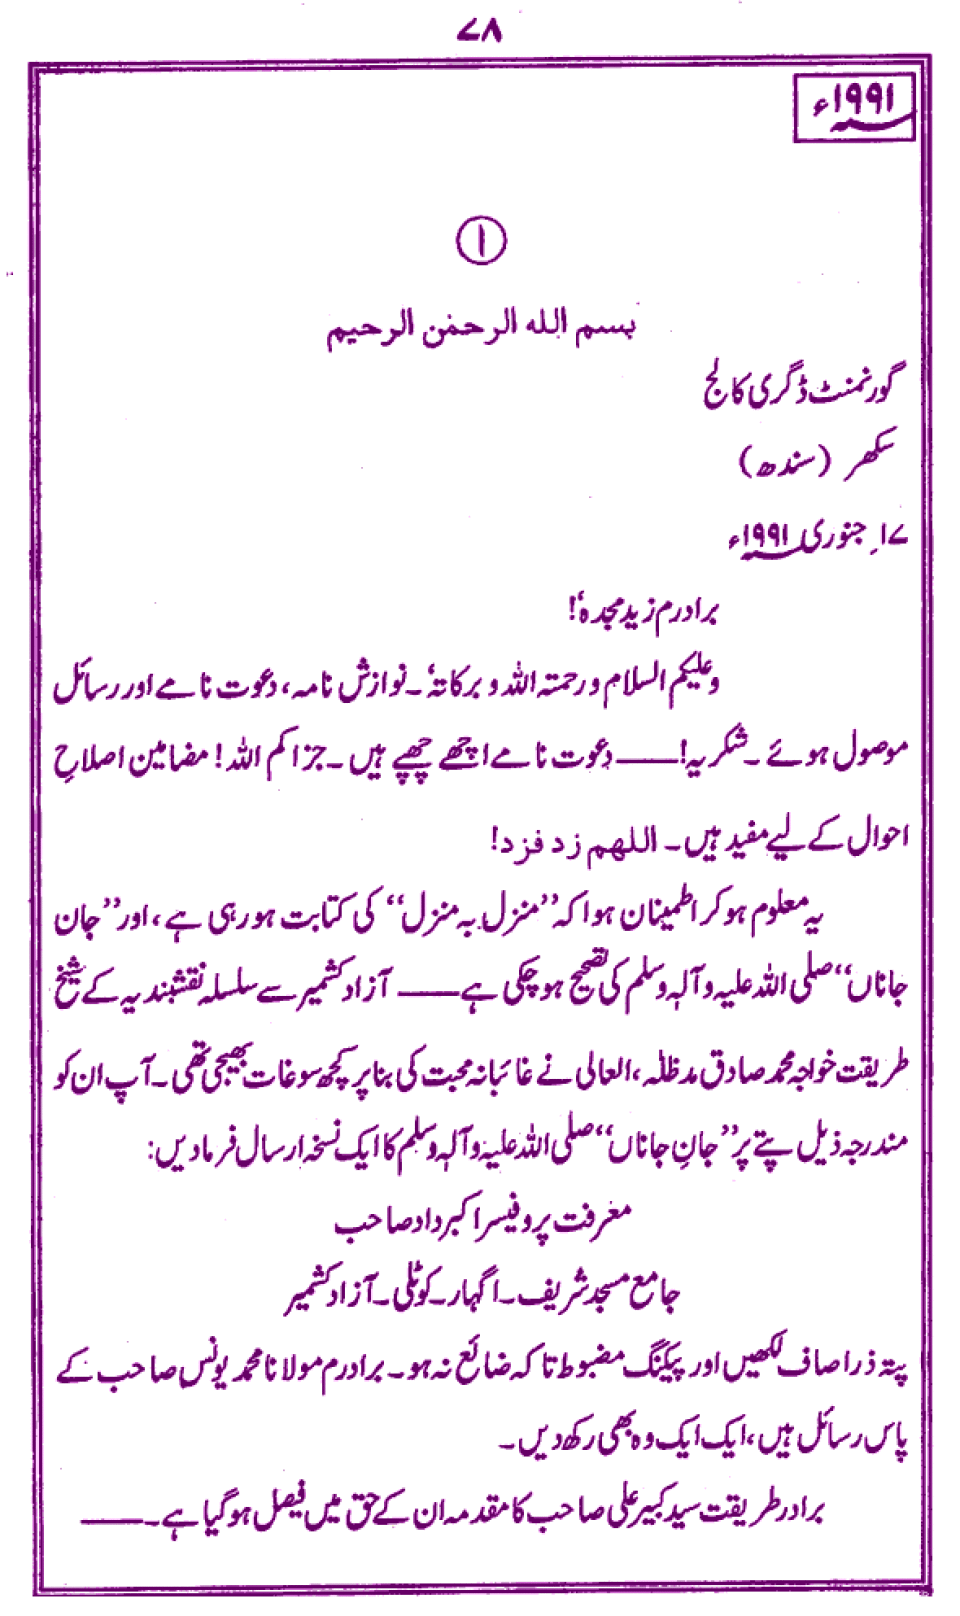 ۷۸
۱۹۹۱ء
۱
بسم الله الرحمٰن الرحیم
گورنمنٹ ڈگری کالج
سکھر (سندھ)
۱۷؍ جنوری ۱۹۹۱ء
برادرم زید مجدہٗ!
وعلیکم السلام ورحمتہ اللہ وبرکاتہٗ۔ نوازش نامہ، دعوت نامے اور رسائل
موصول ہوئے۔ شکریہ! —— دعوت نامے اچھے چھپے ہیں۔ جزاکم اللہ! مضامین اصلاحِ
احوال کے لیے مفید ہیں۔ اللهم زد فزد!
یہ معلوم ہوکر اطمینان ہوا کہ ”منزل بہ منزل“ کی کتابت ہورہی ہے، اور ”جان
جاناں“ صلی اللہ علیہ وآلہٖ وسلم کی تصحیح ہوچکی ہے —— آزاد کشمیر سے سلسلہ نقشبندیہ کے شیخ
طریقت خواجہ محمد صادق مدظلہ، العالی نے غائبانہ محبت کی بنا پر کچھ سوغات بھیجی تھی۔ آپ ان کو
مندرجہ ذیل پتے پر ”جانِ جاناں“ صلی اللہ علیہ وآلہٖ وسلم کا ایک نسخہ ارسال فرمادیں:
معرفت پروفیسر اکبر داد صاحب
جامع مسجد شریف۔ اگہار۔ کوٹلی۔ آزاد کشمیر
پتہ ذرا صاف لکھیں اور پیکنگ مضبوط تاکہ ضائع نہ ہو۔ برادرم مولانا محمد یونس صاحب کے
پاس رسائل ہیں، ایک ایک وہ بھی رکھ دیں۔
برادر طریقت سید کبیر علی صاحب کا مقدمہ ان کے حق میں فیصل ہوگیا ہے۔ ——